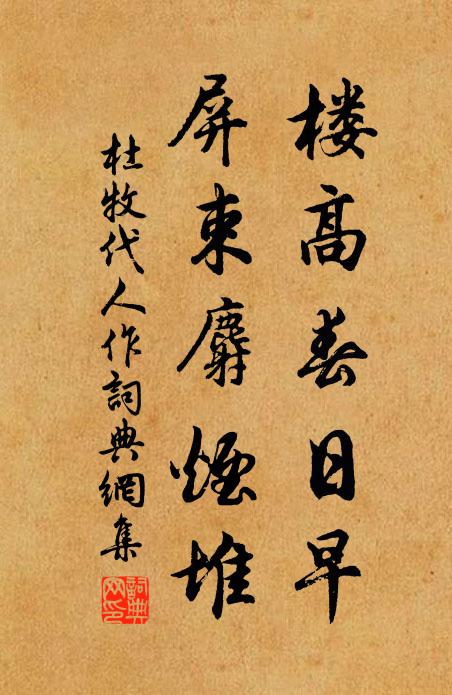 楼高春日早
屏束麝煙堆
杜牧代人作詞典網集
詞典网印